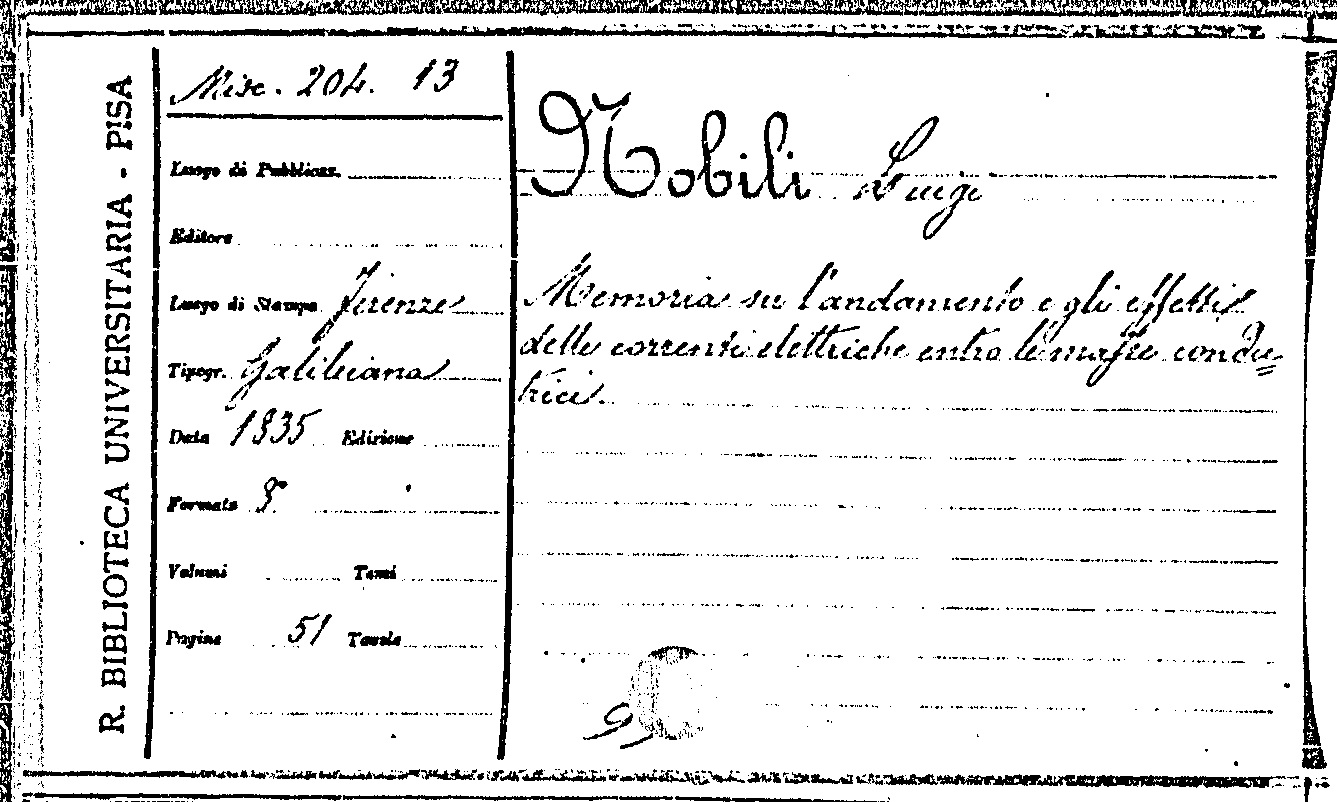 R. BIBLIOTECA UNIVERSITARIA - PISA
Misc. 204. 13
Luogo di Pubblicaz.
Editore
Luogo di Stampa Firenze
Tipogr. Galileiana
Data 1835 Edizione
Formato 8°
Volumi Tomi
Pagine 51 Tavole
Nobili Luigi
Memoria su l'andamento e gli effetti
delle correnti elettriche entro le masse condu=
trici.